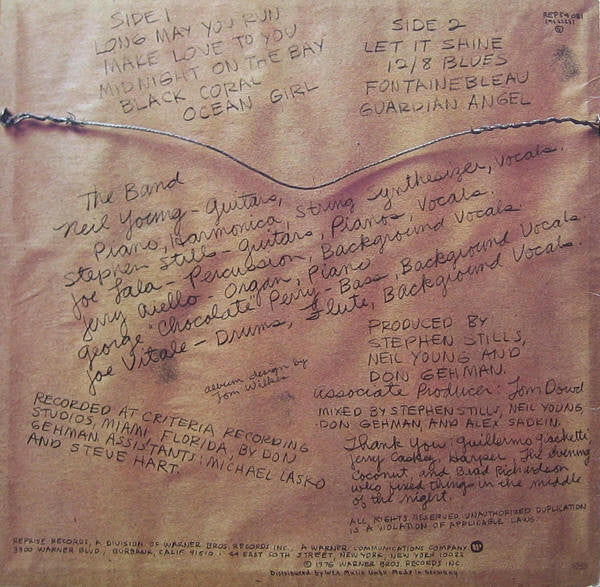 SIDE 1
LONG MAY YOU RUN
MAKE LOVE TO YOU
MIDNIGHT ON THE BAY
BLACK CORAL
OCEAN GIRL
SIDE 2
LET IT SHINE
12/8 BLUES
FONTAINEBLEAU
GUARDIAN ANGEL
REP 54 081
The Band
Neil Young - Guitars,
Piano, Harmonica, String Synthesizer, Vocals.
Stephen Stills - Guitars, Pianos, Vocals.
Joe Lala - Percussion, Background Vocals.
Jerry Aiello - Organ, Piano
George "Chocolate" Perry - Bass, Background Vocals.
Joe Vitale - Drums, Flute, Background Vocals.
album design by
Tom Wilkes
PRODUCED BY
STEPHEN STILLS,
NEIL YOUNG AND
DON GEHMAN.
Associate Producer: Tom Dowd
MIXED BY STEPHEN STILLS, NEIL YOUNG,
DON GEHMAN, AND ALEX SADKIN.
RECORDED AT CRITERIA RECORDING
STUDIOS, MIAMI FLORIDA, BY DON
GEHMAN ASSISTANTS: MICHAEL LASKO
AND STEVE HART.
Thank You: Guillermo Giachetti,
Jerry Caskey, Harper, The evening
Coconut, and Brad Richardson
who fixed things in the middle
of the night.
ALL RIGHTS RESERVED. UNAUTHORIZED DUPLICATION
IS A VIOLATION OF APPLICABLE LAWS.
REPRISE RECORDS, A DIVISION OF WARNER BROS. RECORDS INC., A WARNER COMMUNICATIONS COMPANY
3300 WARNER BLVD., BURBANK, CALIF. 91510 · 44 EAST 50TH STREET, NEW YORK, NEW YORK 10022
© 1976 WARNER BROS. RECORDS INC.
Distributed by WEA Musik GmbH · Made in Germany